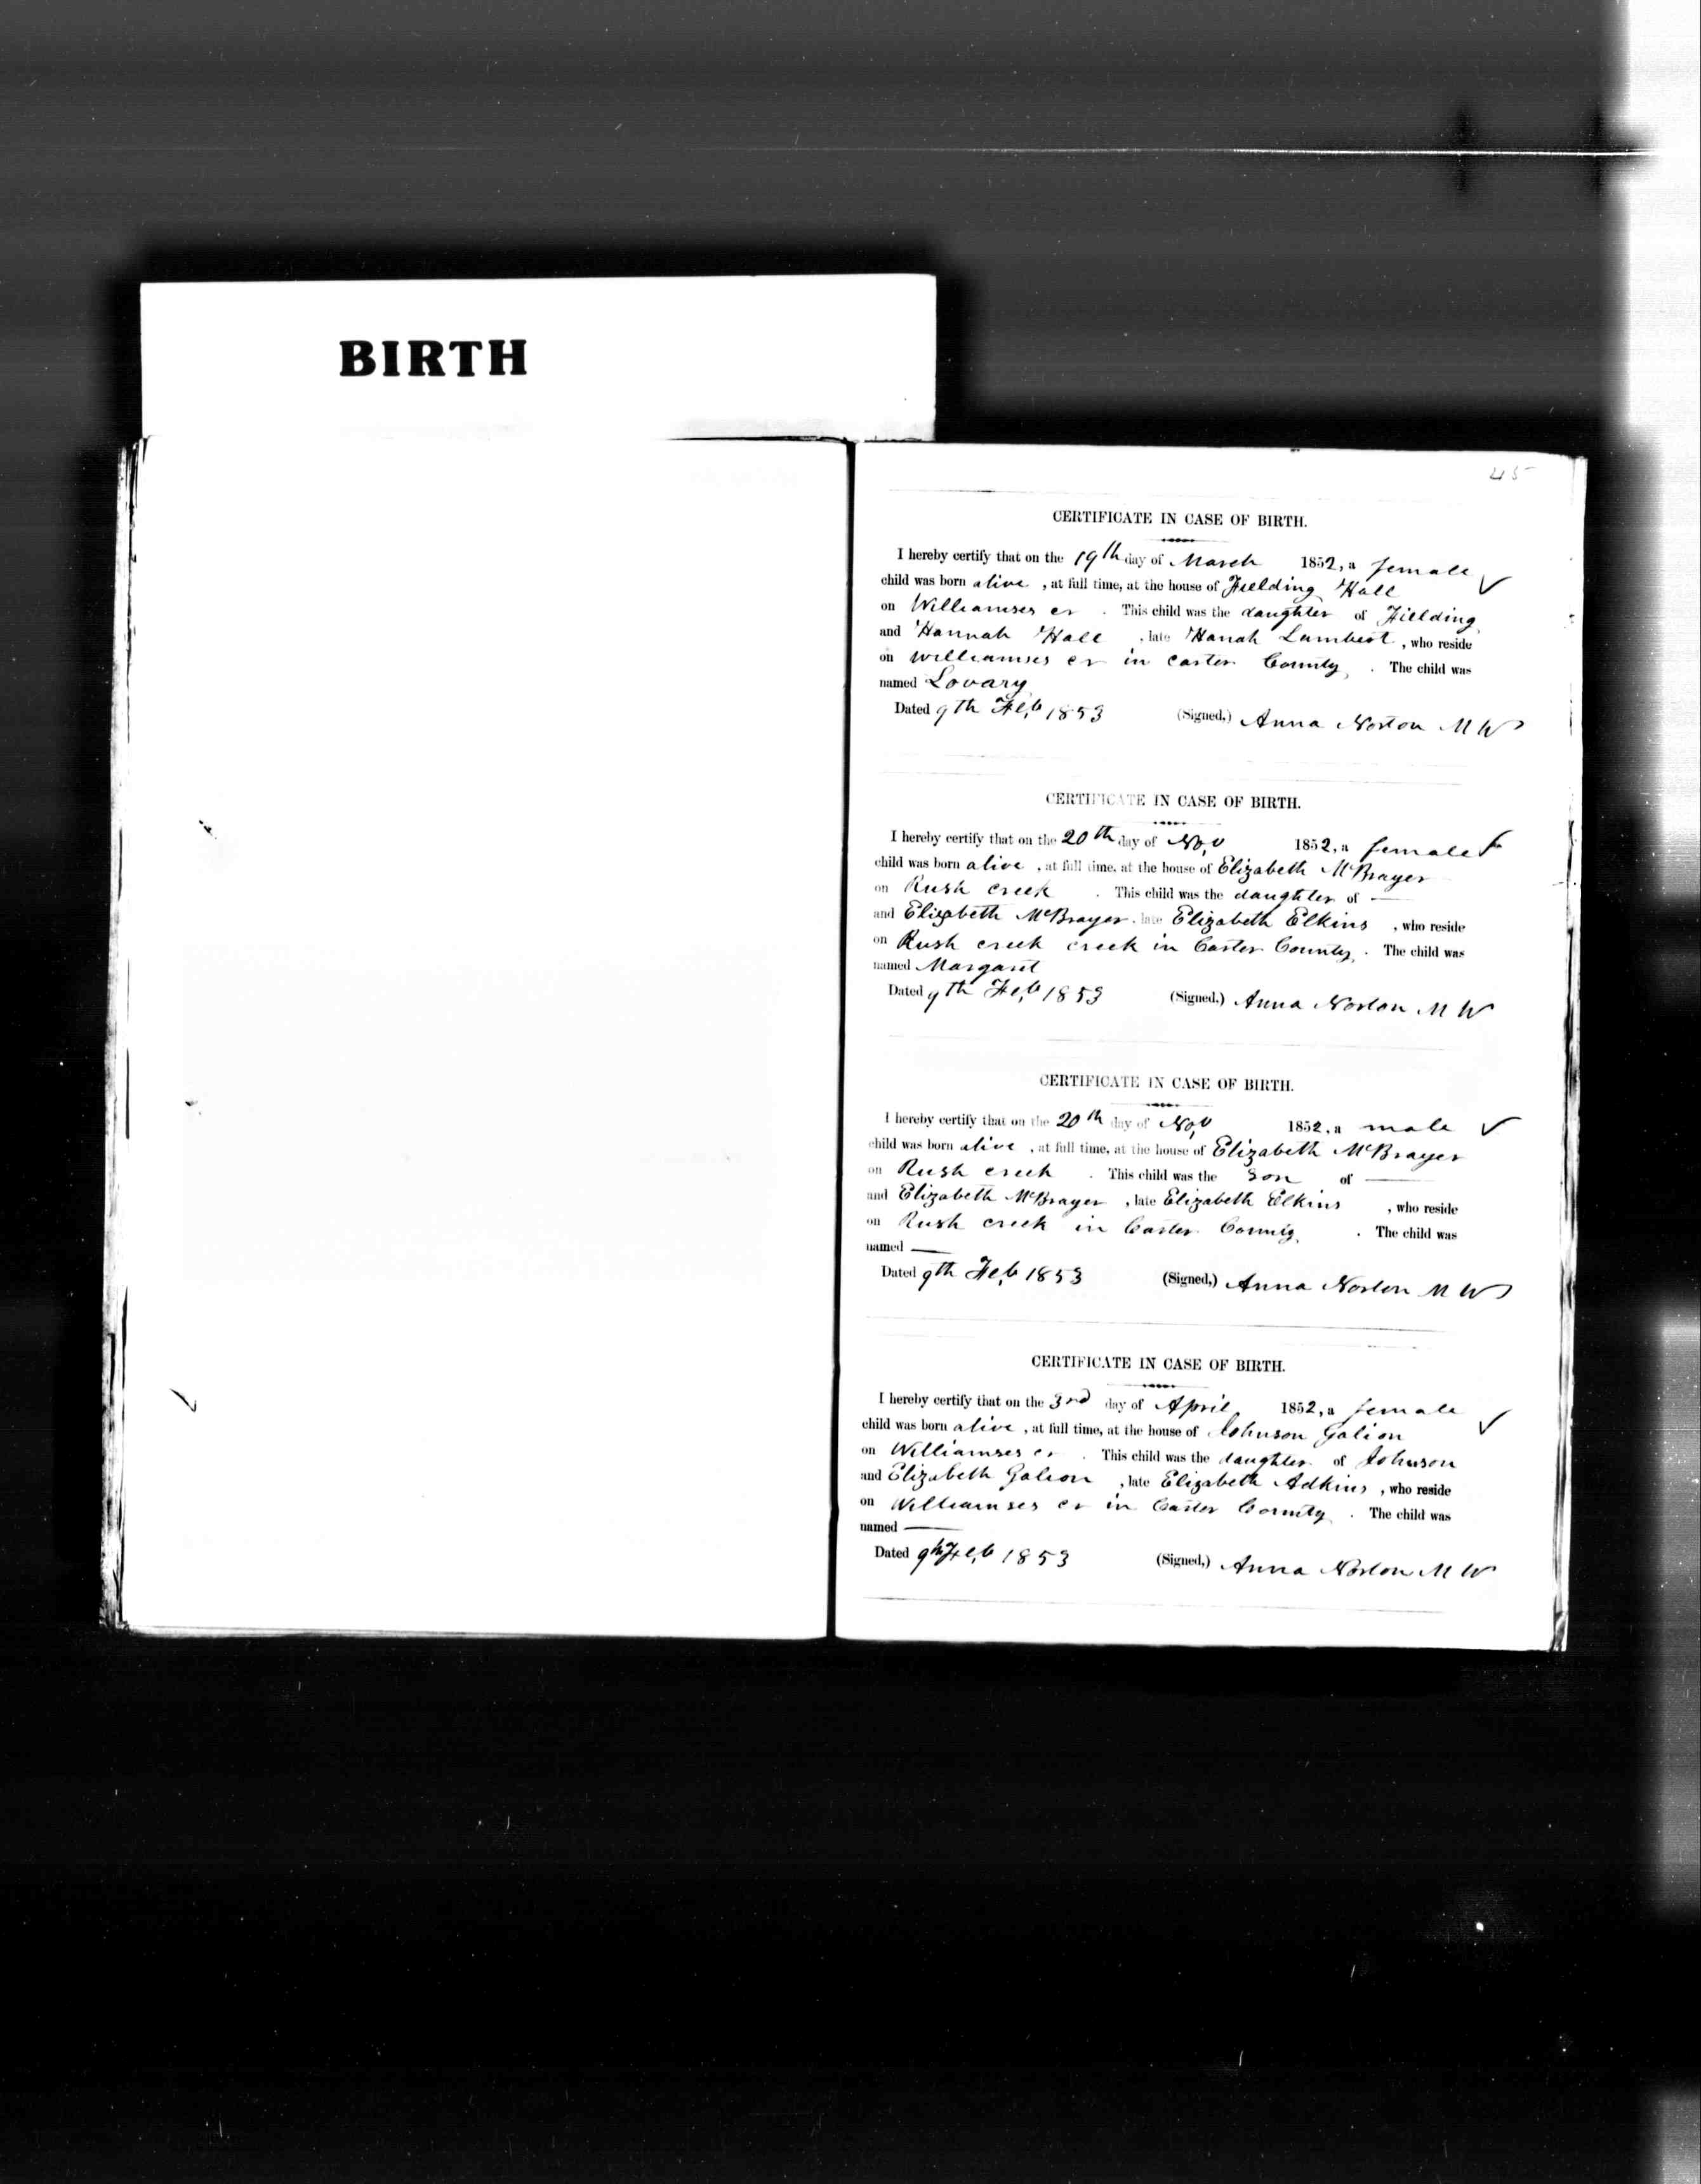 BIRTH
45
CERTIFICATE IN CASE OF BIRTH.
I hereby certify that on the 19th day of March 1852, a female
child was born alive , at full time, at the house of Fielding Hall
on Williamses cr . This child was the daughter of Fielding
and Hannah Hall , late Hanah Lambert , who reside
on Williamses cr in Carter County . The child was
named Lovary
Dated 9th Feb 1853 (Signed,) Anna Norton M W
CERTIFICATE IN CASE OF BIRTH.
I hereby certify that on the 20th day of Nov 1852, a female
child was born alive , at full time, at the house of Elizabeth McBrayer
on Rush creek . This child was the daughter of —
and Elizabeth McBrayer , late Elizabeth Elkins , who reside
on Rush creek creek in Carter County . The child was
named Margaret
Dated 9th Feb 1853 (Signed,) Anna Norton M W
CERTIFICATE IN CASE OF BIRTH.
I hereby certify that on the 20th day of Nov 1852, a male
child was born alive , at full time, at the house of Elizabeth McBrayer
on Rush creek . This child was the son of —
and Elizabeth McBrayer , late Elizabeth Elkins , who reside
on Rush creek in Carter County . The child was
named —
Dated 9th Feb 1853 (Signed,) Anna Norton M W
CERTIFICATE IN CASE OF BIRTH.
I hereby certify that on the 3rd day of April 1852, a female
child was born alive , at full time, at the house of Johnson Galion
on Williamses cr . This child was the daughter of Johnson
and Elizabeth Galion , late Elizabeth Adkins , who reside
on Williamses cr in Carter County . The child was
named —
Dated 9th Feb 1853 (Signed,) Anna Norton M W